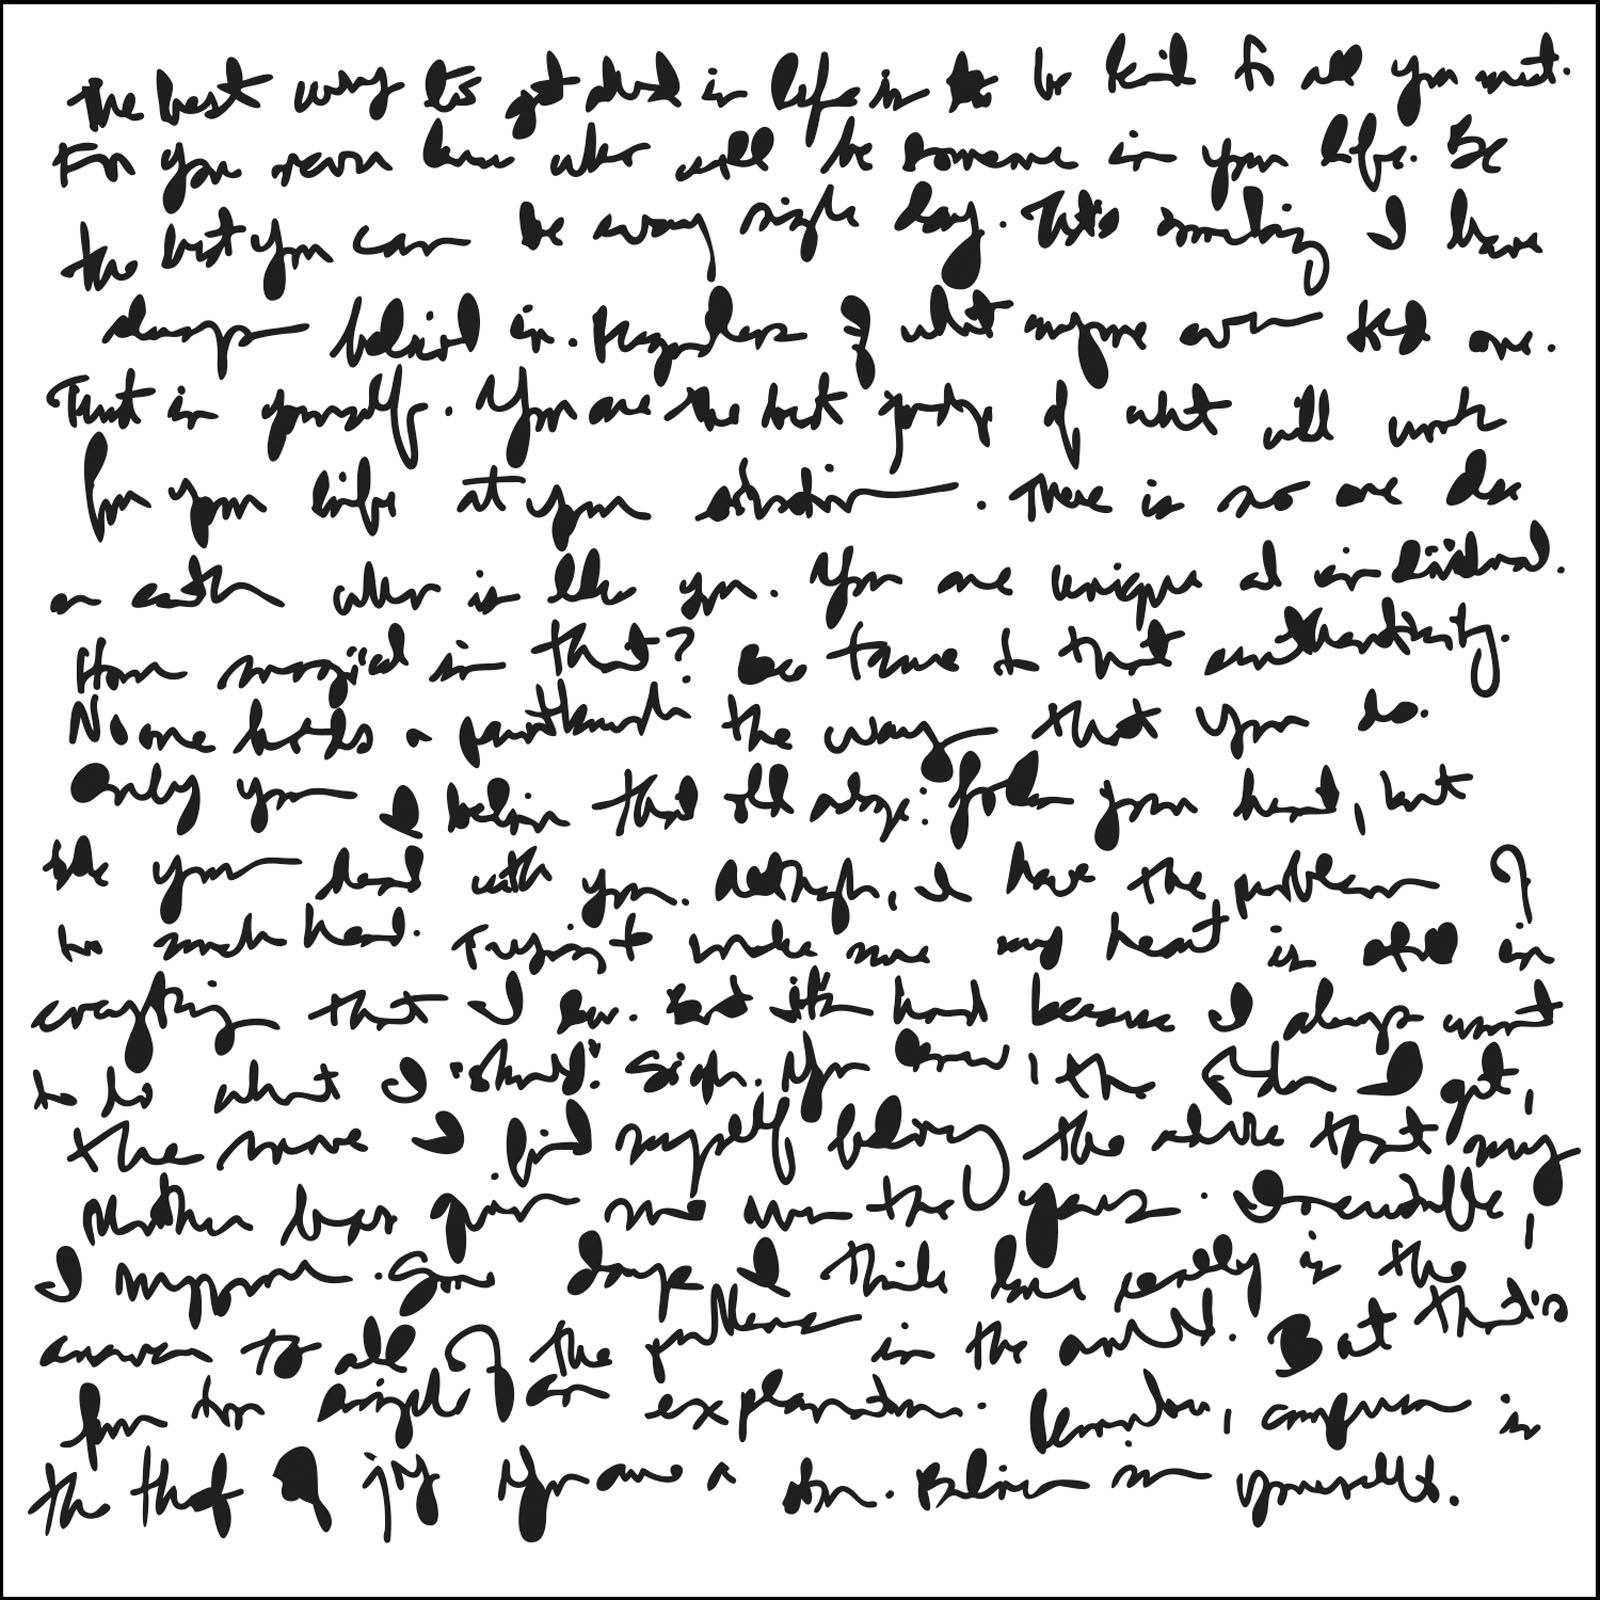 The best way to get ahead in life is to be kind to all you meet.
For you never know who will be someone in your life. Be
the best you can be every single day. That's something I have
always believed in. Regardless of what anyone ever told me.
Trust in yourself. You are the best judge of what will work
for your life at your situation. There is no one else
on earth who is like you. You are unique and individual.
How magical is that? Be true to that authenticity.
No one holds a paintbrush the way that you do.
Only you. I believe that old adage: follow your heart, but
take your head with you. Although, I have the problem of
too much head. Trying to make sure my heart is also in
everything that I do. But it's hard because I always want
to do what I "should". Sigh. You know, the older I get,
the more I find myself believing the advice that my
Mother has given me over the years. Inevitable,
I suppose. Some days I think love really is the
answer to all of the problems in the world. But that's
far too simple of an explanation. Remember, comparison is
the thief of joy. You are a star. Believe in yourself.